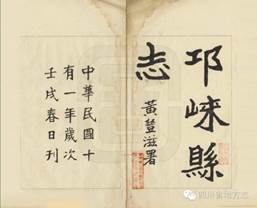 邛崍縣
志
黃豐滋署
中華民國十
有一年歲次
壬戌春日刊
四川省地方志